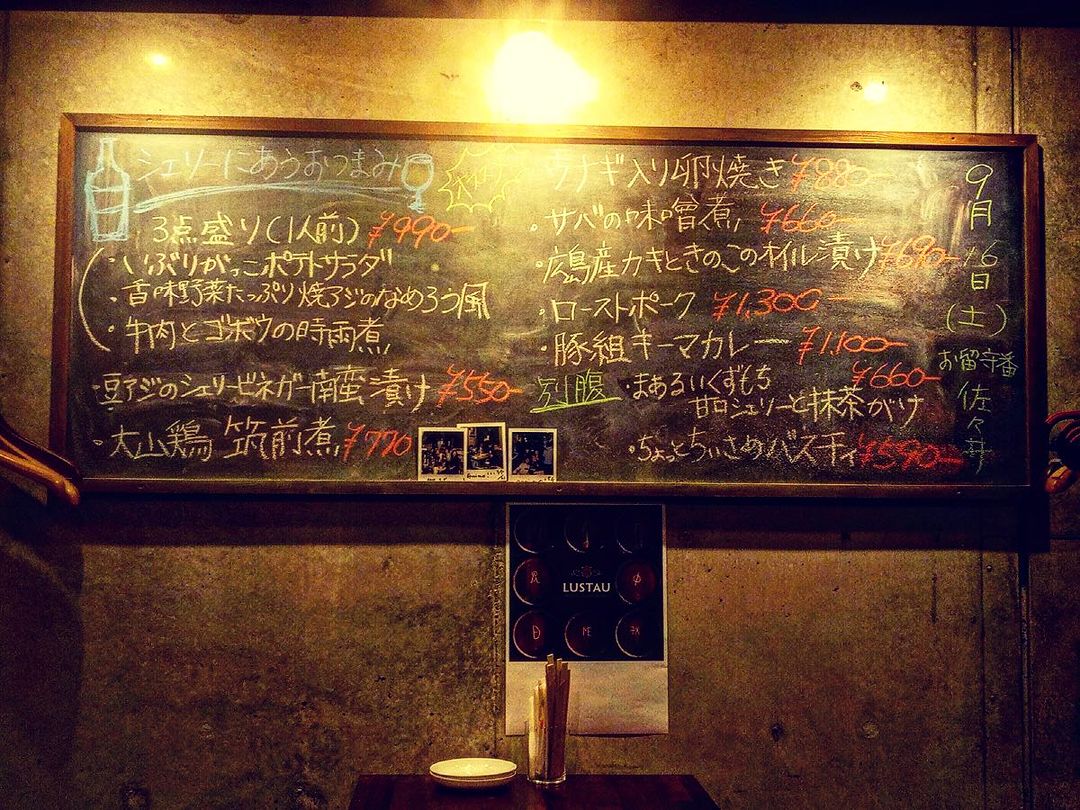 シェリーにあうおつまみ
3点盛り(1人前) ¥990-
・いぶりがっこポテトサラダ
・香味野菜たっぷり焼アジのなめろう風
・牛肉とゴボウの時雨煮
・豆アジのシェリービネガー南蛮漬け ¥550-
・大山鶏 筑前煮 ¥770
ウナギ入り卵焼き ¥880-
・サバの味噌煮 ¥660-
・広島産カキときのこのオイル漬け ¥690-
・ローストポーク ¥1,300-
・豚組キーマカレー ¥1,100-
別腹
・まあるいくずもち ¥660-
甘口シェリーと抹茶がけ
・ちょっとちいさめバスチィ ¥590-
9月16日(土)
お留守番
佐々井
LUSTAU